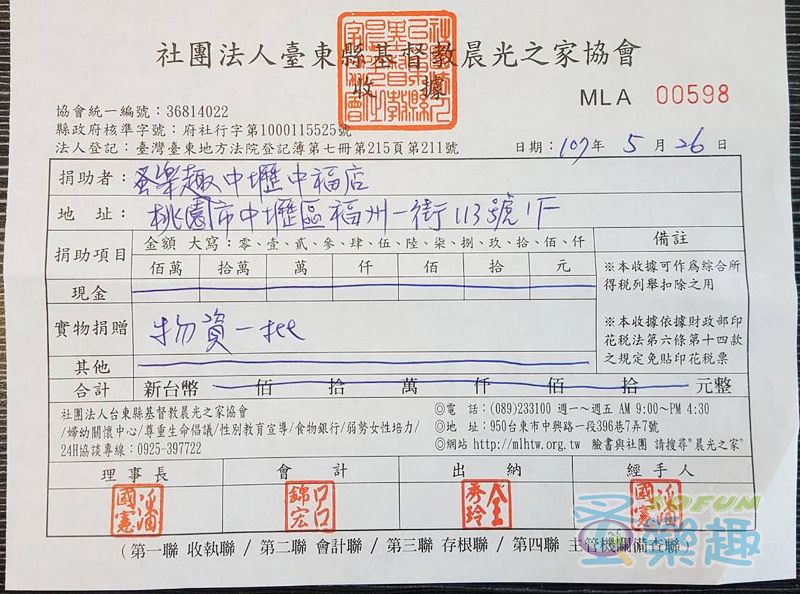 社團法人臺東縣基督教晨光之家協會
收 據
MLA 00598
協會統一編號：36814022
縣政府核準字號：府社行字第1000115525號
法人登記：臺灣臺東地方法院登記簿第七冊第215頁第211號
日期：107年 5 月 26 日
捐助者：圣樂趣中壢中福店
地 址：桃園市中壢區福州一街113號1F
捐助項目 金額 大寫：零、壹、貳、參、肆、伍、陸、柒、捌、玖、拾、佰、仟 備註
佰萬 拾萬 萬 仟 佰 拾 元
現金
※本收據可作為綜合所
得稅列舉扣除之用
實物捐贈 物資一批
※本收據依據財政部印
花稅法第六條第十四款
之規定免貼印花稅票
其他
合計 新台幣 佰 拾 萬 仟 佰 拾 元整
社團法人台東縣基督教晨光之家協會
/婦幼關懷中心/尊重生命倡議/性別教育宣導/食物銀行/弱勢女性培力/
24H協談專線：0925-397722
◎電 話：(089)233100 週一~週五 AM 9:00~PM 4:30
◎地 址：950台東市中興路一段396巷7弄7號
◎網站 http://mlhtw.org.tw 臉書與社團 請搜尋"晨光之家"
理 事 長 會 計 出 納 經 手 人
SOFUN
圣樂趣
(第一聯 收執聯 / 第二聯 會計聯 / 第三聯 存根聯 / 第四聯 主管機關備查聯)